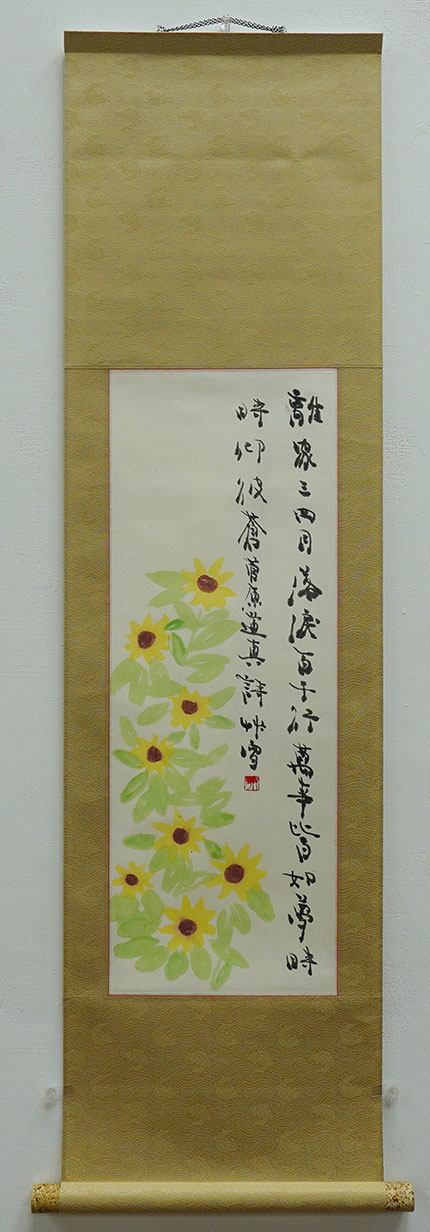 離家三四月落涙百千行萬事皆如夢時
時仰彼蒼菅原道真詩艸雪